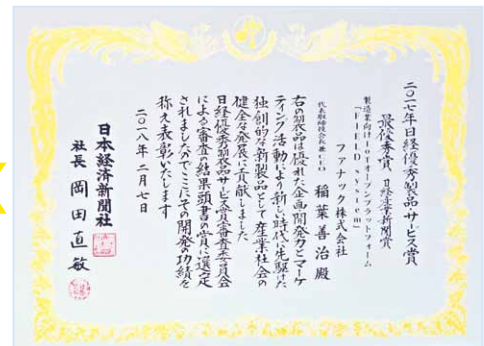 二〇一七年日経優秀製品・サービス賞
最優秀賞 日経産業新聞賞
製造業向けIoTオープンプラットフォーム
「FIELD system」
ファナック株式会社
代表取締役会長兼CEO 稲葉善治殿
右の製品は優れた企画開発力とマーケ
ティング活動により新しい時代に先駆けた
独創的な新製品として産業社会の
健全な発展に貢献しました
日経優秀製品・サービス賞審査委員会
による審査の結果頭書の賞に選定
されましたのでここにその開発の功績を
称え表彰いたします
二〇一八年二月七日
日本経済新聞社
社長 岡田直敏